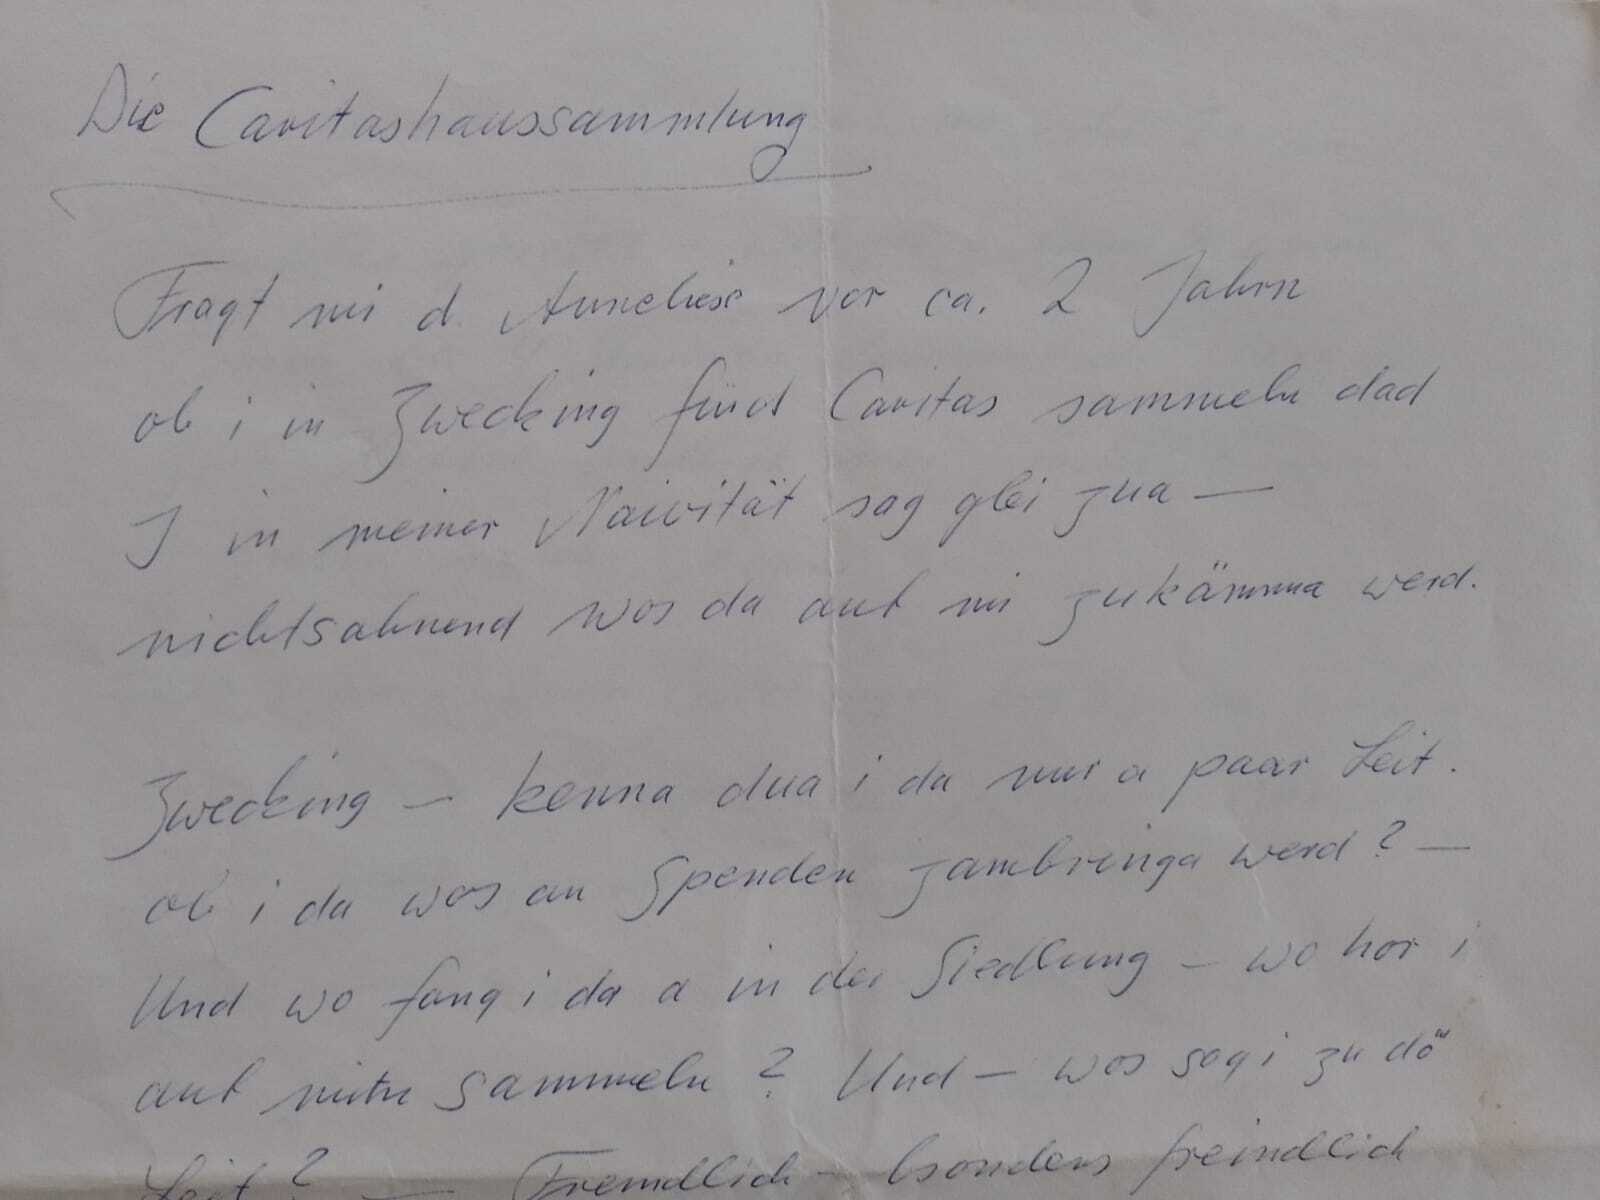 Die Caritashaussammlung
Fragt mi d. Anneliese vor ca. 2 Jahrn
ob i in Zwecking fürd Caritas sammeln dad
I in meiner Naivität sag glei zua —
nichtsahnend wos da auf mi zukämma werd.
Zwecking — kenna dua i da nur a paar Leit.
ob i da wos an Spenden zambringa werd? —
Und wo fang i da a in der Siedlung — wo hor i
auf mitn sammeln? Und — wos sog i zu dö
Leit? — Freindlich — bsonders freindlich